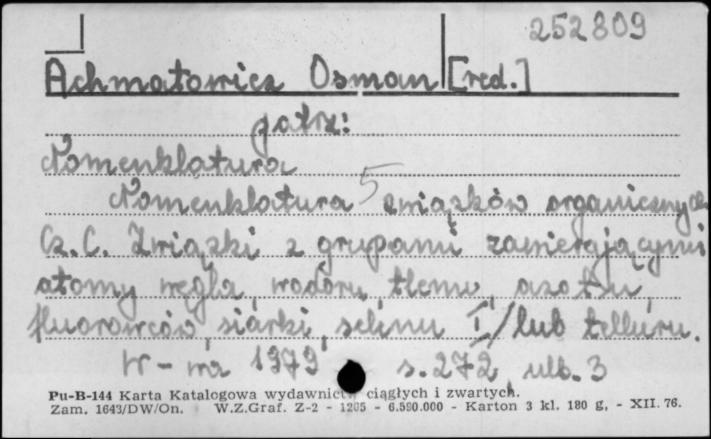 252809
Achmatowicz Osman [red.]
patrz:
Nomenklatura
5
Nomenklatura związków organicznych
Cz. C. Związki z grupami zawierającymi
atomy węgla, wodoru, tlenu, azotu,
fluorowców, siarki, selenu I/lub telluru.
W-wa 1979 s. 272, ulb. 3
Pu-B-144 Karta Katalogowa wydawnictw ciągłych i zwartych.
Zam. 1643/DW/On. W.Z.Graf. Z-2 - 1205 - 6.590.000 - Karton 3 kl. 180 g, - XII. 76.